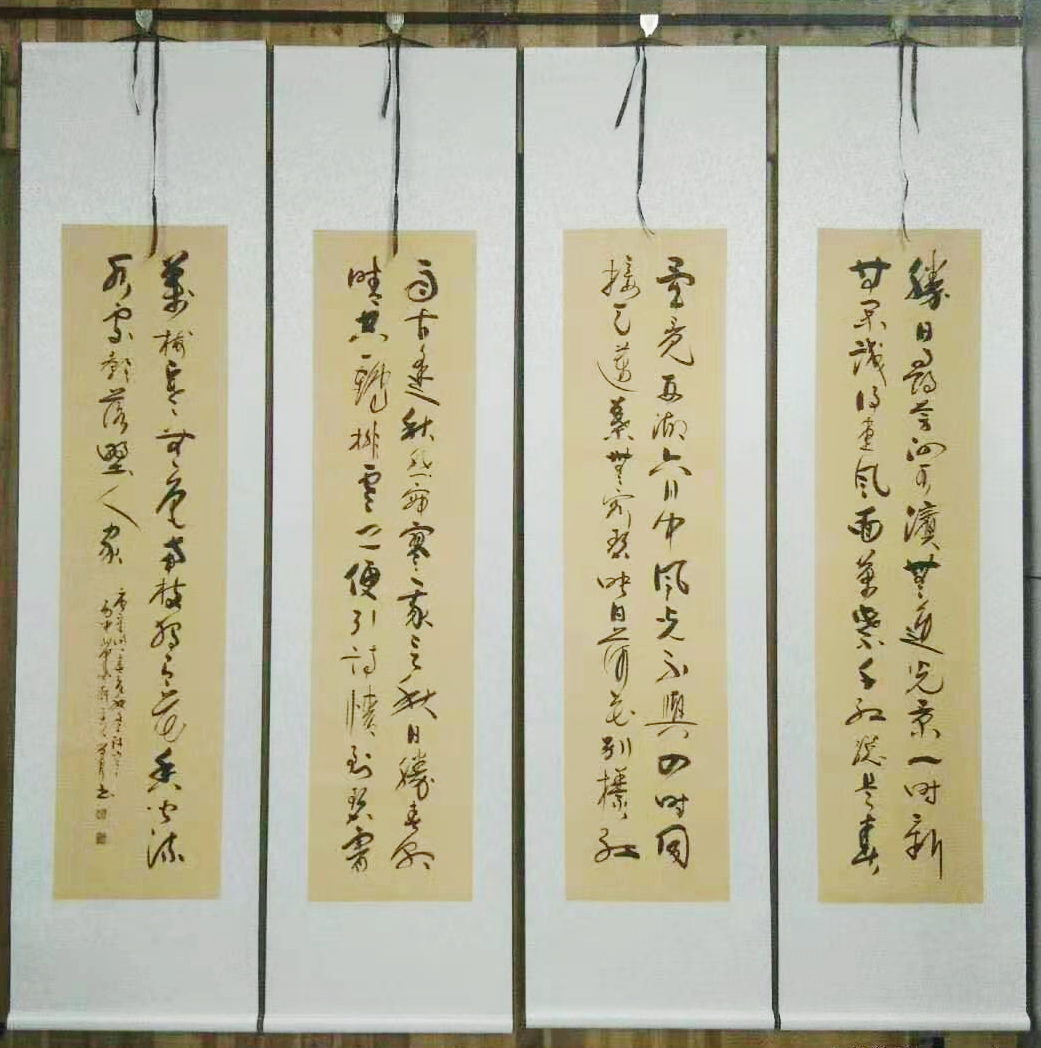 勝日尋芳泗水濱無邊光景一時新
等閒識得東風面萬紫千紅總是春
畢竟西湖六月中風光不與四時同
接天蓮葉無窮碧映日荷花別樣紅
自古逢秋悲寂寥我言秋日勝春朝
晴空一鶴排雲上便引詩情到碧霄
萬樹寒無色南枝獨有花香聞流
水處影落野人家